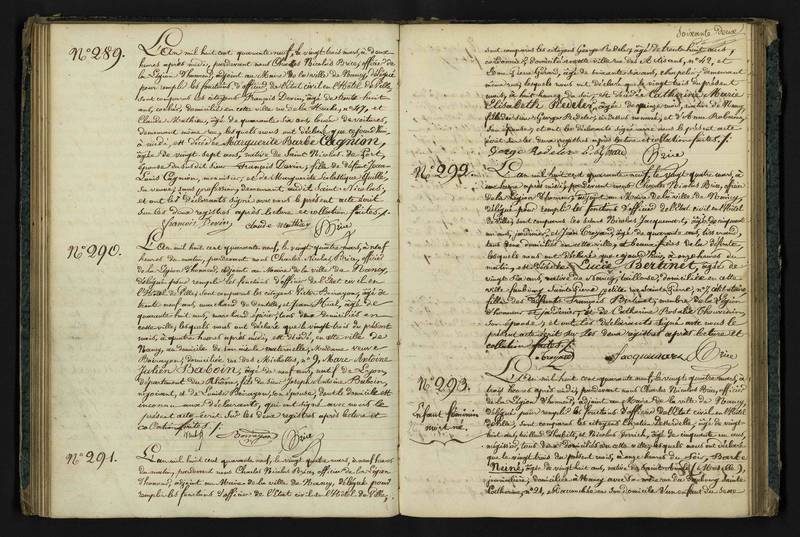 N.° 289.
L'an mil huit cent quarante neuf, le vingt trois mars, à deux
heures après midi, pardevant nous Charles Nicolas Brice, officier de
la Légion d'honneur, adjoint au Maire de la ville de Nancy, délégué
pour remplir les fonctions d'officier de l'Etat civil en l'Hôtel de Ville,
sont comparus les citoyens François Devin, âgé de trente huit
ans, domicilié en cette ville rue de la N.° 47, et
Claude Mathieu, âgé de quarante six ans, loueur de voitures,
demeurant même rue, lesquels nous ont déclaré que cejourd'hui
à midi, est décédée Marguerite Barbe Cagnion,
âgée de vingt sept ans, native de Saint Nicolas de Port,
épouse dudit François Devin, fille de défunt Jean
Louis Cagnion, menuisier, et de Marguerite
sa veuve, sans profession, demeurant audit Saint Nicolas,
et ont les déclarants signé avec nous le présent acte écrit
sur les deux registres après lecture et collation faites ./.
François Devin Claude Mathieu Brice
N.° 290.
L'an mil huit cent quarante neuf, le vingt quatre mars, à neuf
heures du matin, pardevant nous Charles Nicolas Brice, officier
de la Légion d'honneur, adjoint au Maire de la ville de Nancy,
délégué pour remplir les fonctions d'officier de l'Etat civil en
l'Hôtel de Ville, sont comparus les citoyens Victor Boivayon, âgé de
trente neuf ans, marchand de dentelles, et Jean âgé de
quarante huit ans, marchand épicier, tous deux domiciliés en
cette ville, lesquels nous ont déclaré que le vingt trois du présent
mois, à quatre heures après midi, est décédé, en cette ville de
Nancy, au domicile de son aïeule maternelle, Madame veuve
Boivayon, domiciliée rue des Michottes, n.° 9, Marc Antoine
Julien Baboin, âgé de neuf ans, natif de Lyon,
département du Rhône, fils de sieur Joseph Antoine Baboin,
négociant, et de Louise Boivayon, son épouse, dont le domicile est
inconnu aux déclarants, qui ont signé avec nous le
présent acte écrit sur les deux registres après lecture et
collation faites ./.
Boivayon Brice
N.° 291.
L'an mil huit cent quarante neuf, le vingt quatre mars, à neuf heures
du matin, pardevant nous Charles Nicolas Brice, officier de la Légion
d'honneur, adjoint au Maire de la ville de Nancy, délégué pour
remplir les fonctions d'officier de l'Etat civil en l'Hôtel de Ville,
Soixante Deux
sont comparus les citoyens Georges Redeler, âgé de trente huit ans,
cordonnier, domicilié en cette ville rue des Artisans, n.° 42, et
Jean Pierre Gérard, âgé de soixante six ans, chapelier, demeurant
même rue, lesquels nous ont déclaré que le vingt trois du présent
mois, à huit heures du soir, est décédée Catherine Marie
Elisabeth Redeler, âgée de quinze mois, native de Nancy,
fille dudit Georges Redeler, ci dessus nommé, et d'Anne
son épouse, et ont les déclarants signé avec nous le présent acte
écrit sur les deux registres après lecture et collation faites ./.
George Redeler Gérard Brice
N.° 292.
L'an mil huit cent quarante neuf, le vingt quatre mars, à
une heure après midi, pardevant nous Charles Nicolas Brice, officier
de la Légion d'honneur, adjoint au Maire de la ville de Nancy,
délégué pour remplir les fonctions d'officier de l'Etat civil en l'Hôtel
de Ville, sont comparus les sieurs Nicolas Jacquemart, âgé de cinquante
un ans, jardinier, et Jean âgé de quarante ans,
tous deux domiciliés en cette ville, et beaux frères de la défunte,
lesquels nous ont déclaré que cejourd'hui, à onze heures du
matin, est décédée Lucie Bertinet, âgée de
vingt six ans, native de Nancy, tailleuse, domiciliée en cette
ville faubourg Saint Pierre, célibataire,
fille des défunts François Bertinet, membre de la Légion
d'honneur et jardinier, et de Catherine Rosalie
son épouse, et ont les déclarants signé avec nous le
présent acte écrit sur les deux registres après lecture et
collation faites ./.
Jacquemart Brice
N.° 293.
enfant féminin
mort né.
L'an mil huit cent quarante neuf, le vingt quatre mars, à
trois heures après midi, pardevant nous Charles Nicolas Brice, officier
de la Légion d'honneur, adjoint au Maire de la ville de Nancy,
délégué pour remplir les fonctions d'officier de l'Etat civil en l'Hôtel
de Ville, sont comparus les citoyens Charles âgé de vingt
huit ans, et Nicolas âgé de cinquante un ans,
tous deux domiciliés en cette ville, lesquels nous ont déclaré
que le vingt trois du présent mois, à onze heures du soir, Barbe
Néné, âgée de vingt huit ans, native de Saint (Moselle),
journalière, domiciliée à Nancy rue du faubourg Sainte
Catherine, n.° 21, est accouchée en son domicile d'un enfant du sexe